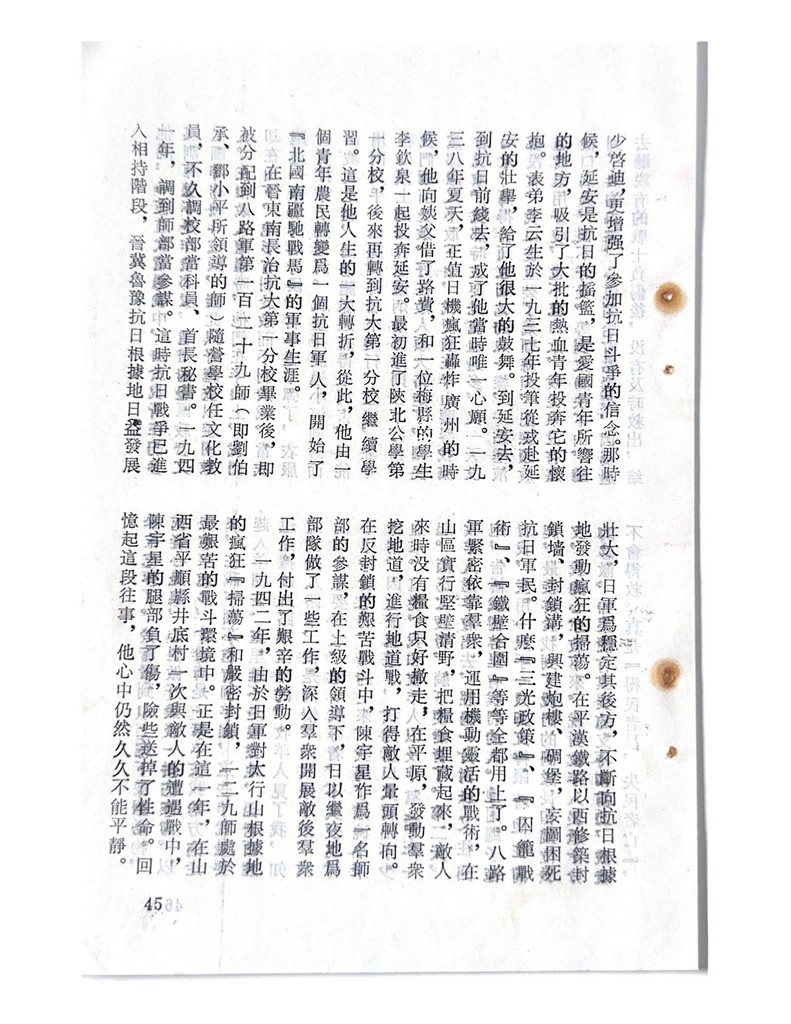 少啓迪,更增强了參加抗日斗爭的信念。那時
候,延安是抗日的搖籃,是愛國青年所響往
的地方,吸引了大批的熱血青年投奔它的懷
抱。表弟李云生於一九三七年投筆從戎赴延
安的壯舉,給了他很大的鼓舞。到延安去,
到抗日前綫去,成了他當時唯一心願。一九
三八年夏天,正值日機瘋狂轟炸廣州的時
候,他向姨父借了路費,和一位梅縣的學生
李欽泉一起投奔延安。最初進了陝北公學第
一分校,後來再轉到抗大第一分校繼續學
習。這是他人生的一大轉折,從此,他由一
個青年農民轉變爲一個抗日軍人,開始了
『北國南疆馳戰馬』的軍事生涯。
在晉東南長治抗大第一分校畢業後,即
被分配到八路軍第一百二十九師(即劉伯
承、鄧小平所領導的師)隨營學校任文化教
員,不久調校部當科員、首長秘書。一九四
一年,調到師部當參謀。這時抗日戰爭已進
入相持階段,晉冀魯豫抗日根據地日益發展
壯大,日軍爲穩定其後方,不斷向抗日根據
地發動瘋狂的掃蕩。在平漢鐵路以西修築封
鎖墻、封鎖溝,興建炮樓、碉堡,妄圖困死
抗日軍民。什麽『三光政策』、『囚籠戰
術』、『鐵壁合圍』等等全都用上了。八路
軍緊密依靠羣衆,運用機動靈活的戰術,在
山區實行堅壁清野,把糧食埋藏起來,敵人
來時没有糧食只好撤走,在平原,發動羣衆
挖地道,進行地道戰,打得敵人暈頭轉向。
在反封鎖的艱苦戰斗中,陳宇星作爲一名師
部的參謀,在上級的領導下,日以繼夜地爲
部隊做了一些工作,深入羣衆開展敵後羣衆
工作,付出了艱辛的勞動。
一九四二年,由於日軍對太行山根據地
的瘋狂『掃蕩』和嚴密封鎖,一二九師處於
最艱苦的戰斗環境中。正是在這一年,在山
西省平順縣井底村一次與敵人的遭遇戰中,
陳宇星的腿部負了傷,險些送掉了性命。回
憶起這段往事,他心中仍然久久不能平靜。
45